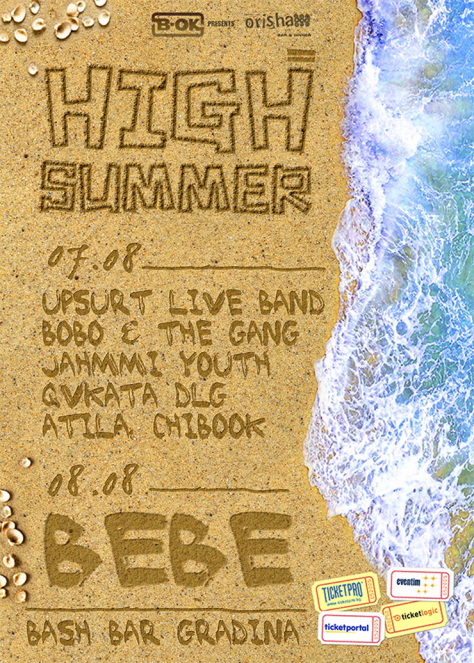 B-OK PRESENTS orisha
BAR & DINNER
HIGH
SUMMER
07.08
UPSURT LIVE BAND
BOBO & THE GANG
JAHMMI YOUTH
QVKATA DLG
ATILA CHIBOOK
08.08
BEBE
BASH BAR GRADINA
TICKETPRO
eventim
ticketportal
ticketlogic